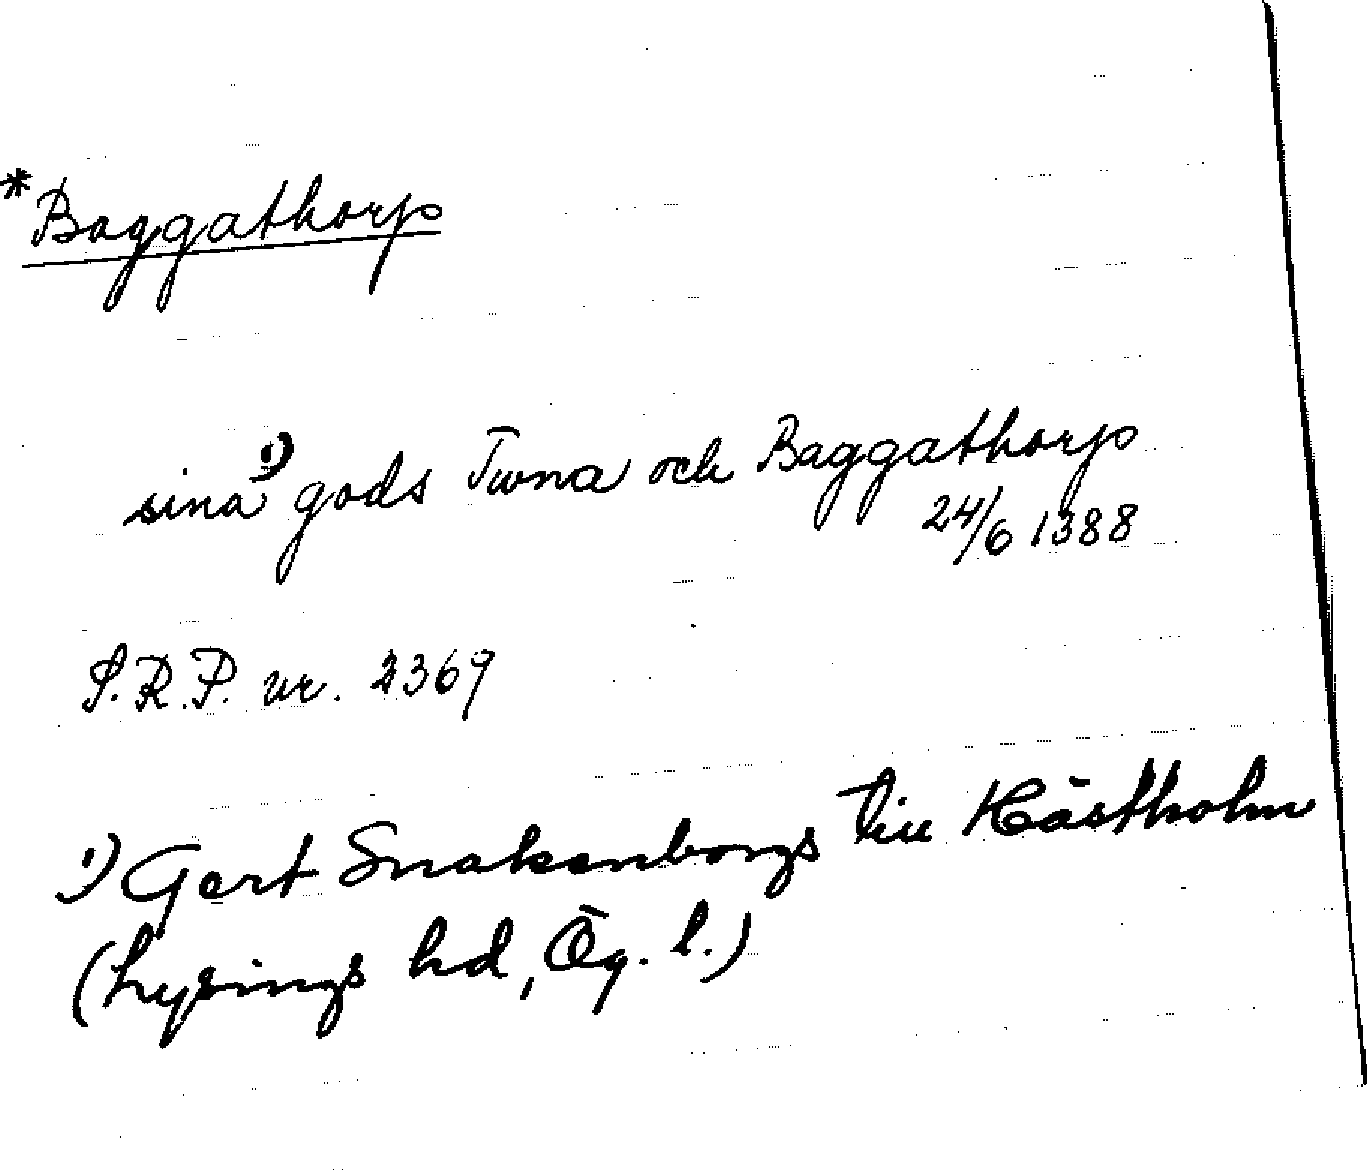 *Baggathorp
sina 1) gods Twna och Baggathorp
24/6 1388
S.R.P. nr. 2369
1) Gert Snakenborgs till Hästholm
(Lysings hd, Ög. l.)